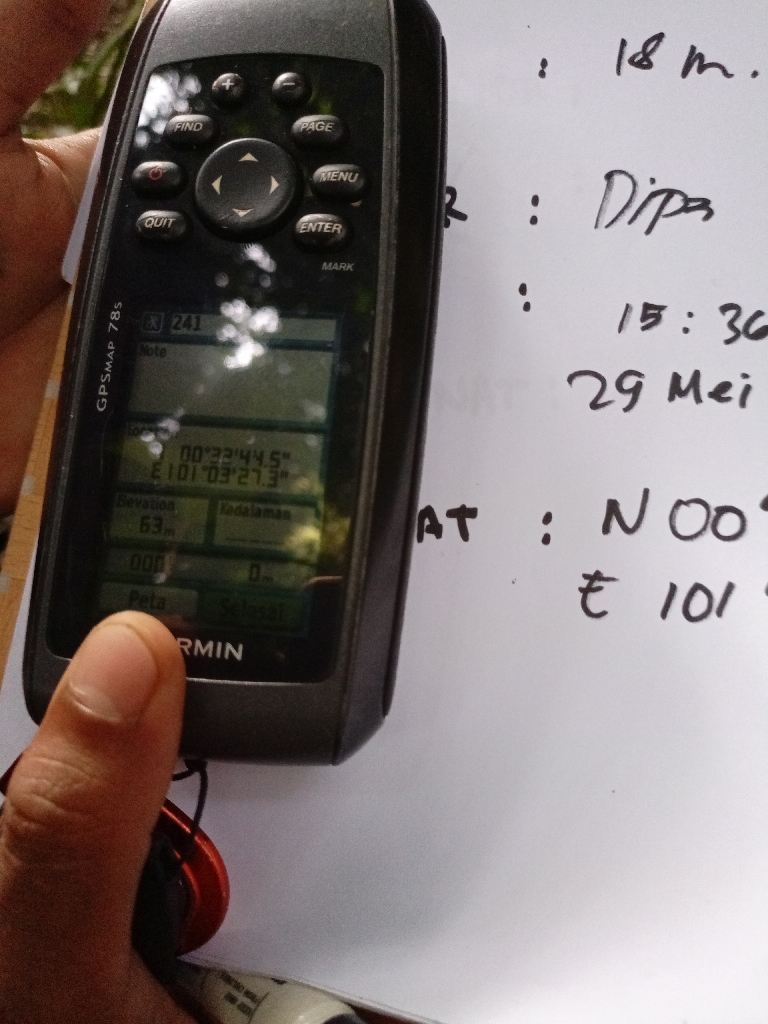 + −
FIND PAGE
MENU
QUIT ENTER
MARK
GPSMAP 78s
241
Note
00°33'44.5"
E101°03'27.3"
Elevation Kedalaman
63m
0m
Peta Selesai
RMIN
: 18 m.
R : Dipa
:
15:36
29 Mei
AT : N 00°
E 101°